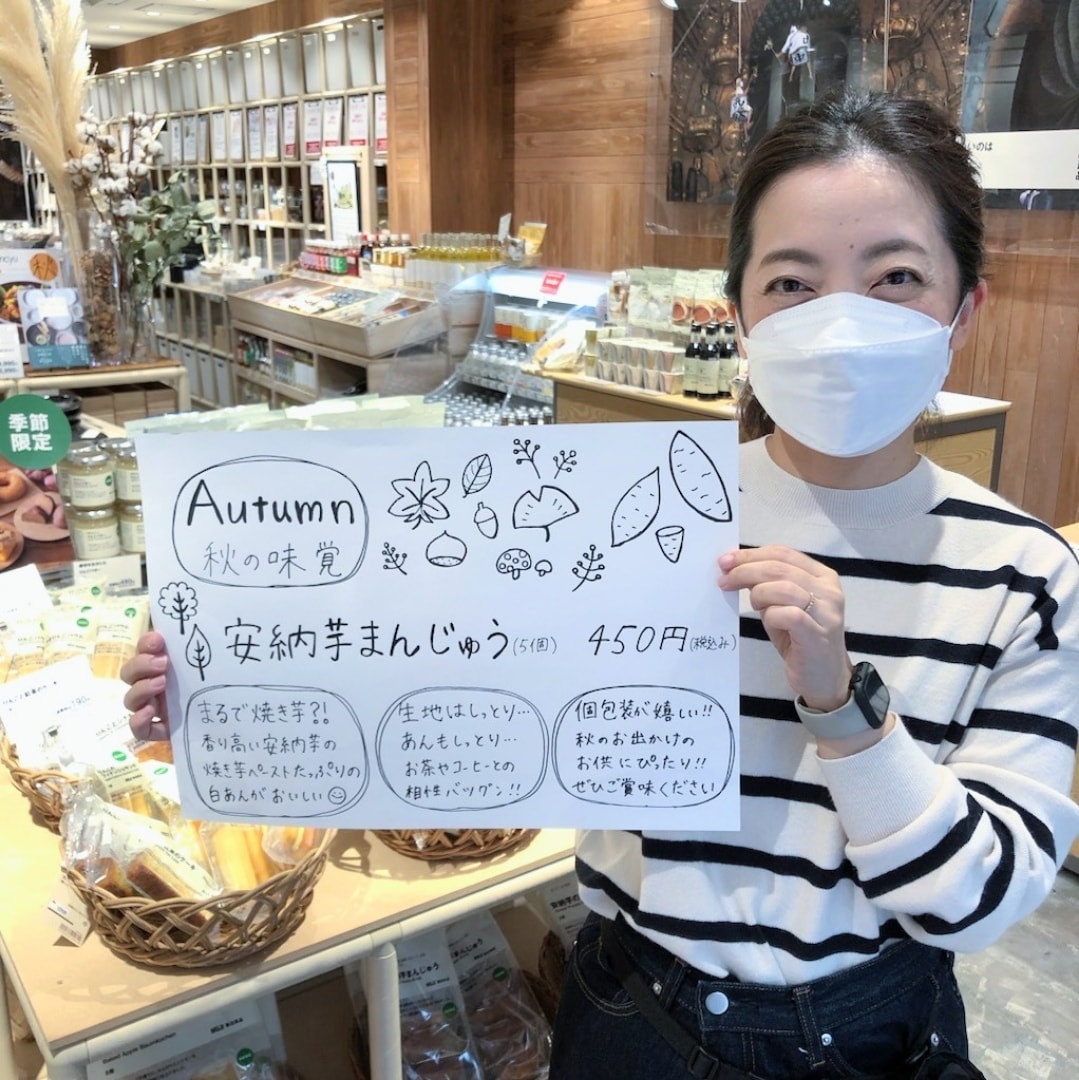 いのは
季節
限定
Autumn
秋の味覚
安納芋まんじゅう(5個) 450円(税込み)
まるで焼き芋?!
香り高い安納芋の
焼き芋ペーストたっぷりの
白あんがおいしい☺
生地はしっとり…
あんもしっとり…
お茶やコーヒーとの
相性バツグン!!
個包装が嬉しい!!
秋のお出かけの
お供にぴったり!!
ぜひご賞味ください
190
Baked Apple Baumkuchen